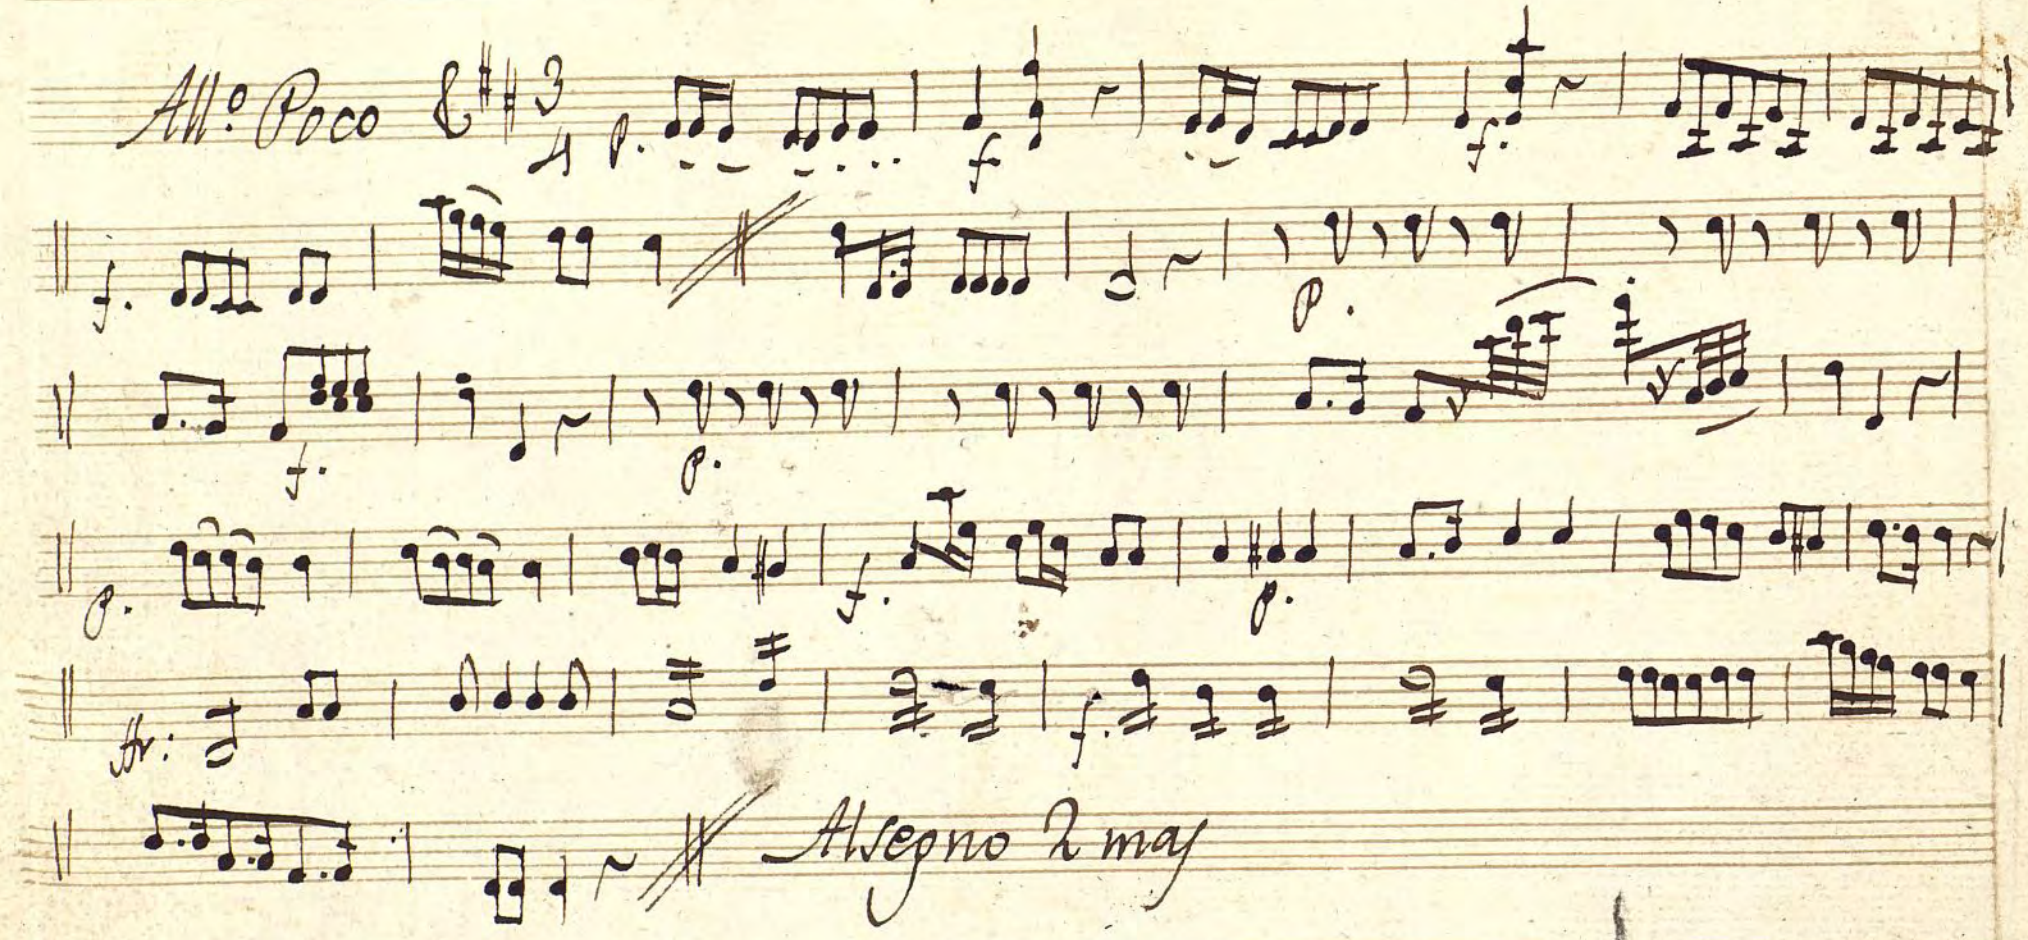 All:o Poco 3 4 p. f f.
f. p.
f. p.
p. f. p.
f.
Alsegno 2 maj